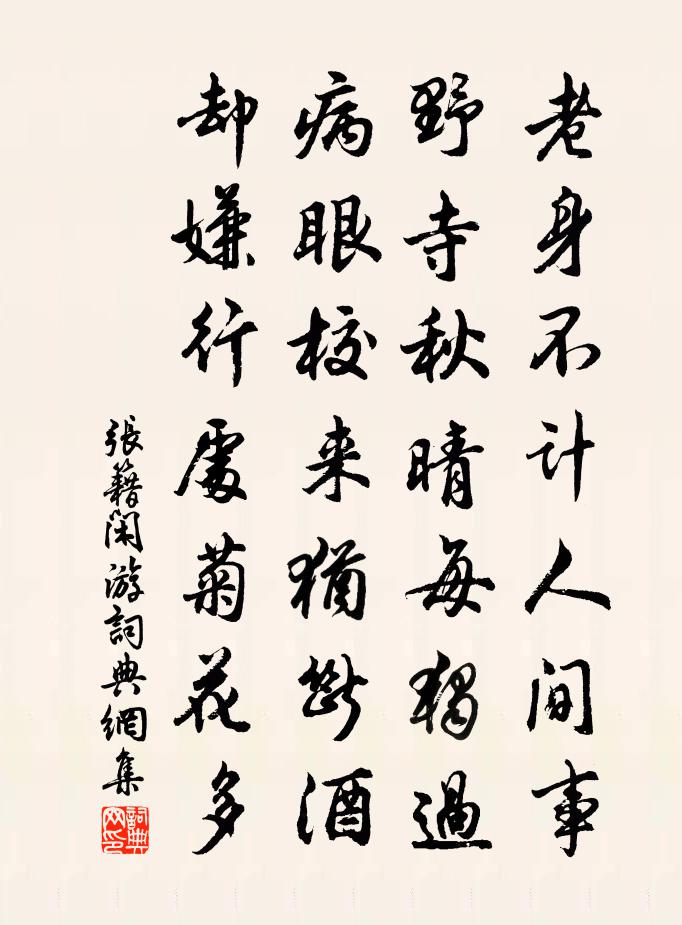 老身不計人間事
野寺秋晴每獨過
病眼校来猶斷酒
却嫌行處菊花多
張籍閑游詞典網集
詞典網印